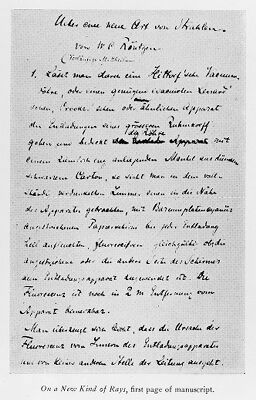 Ueber eine neue Art von Strahlen.
von W. C. Röntgen
(Vorläufige Mittheilung)
1. Lässt man durch eine Hittorf'sche Vacuum-
röhre oder einen genügend evacuirten Lenard'
schen, Crookes'schen oder ähnlichen Apparat
die Entladungen eines grösseren Ruhmkorff's
gehen und bedeckt die Röhre mit
einem ziemlich eng anliegenden Mantel aus dünnem,
schwarzem Carton, so sieht man in dem voll-
ständig verdunkelten Zimmer einen in die Nähe
des Apparates gebrachten, mit Bariumplatincyanür
angestrichenen Papierschirm bei jeder Entladung
hell aufleuchten, fluoresciren, gleichgültig ob die
angestrichene oder die andere Seite des Schirmes
dem Entladungsapparat zugewendet ist. Die
Fluorescenz ist noch in 2 m Entfernung vom
Apparat bemerkbar.
Man überzeugt sich leicht, dass die Ursache der
Fluorescenz vom Innern des Entladungsapparates
und von keiner anderen Stelle der Leitung ausgeht.
On a New Kind of Rays, first page of manuscript.